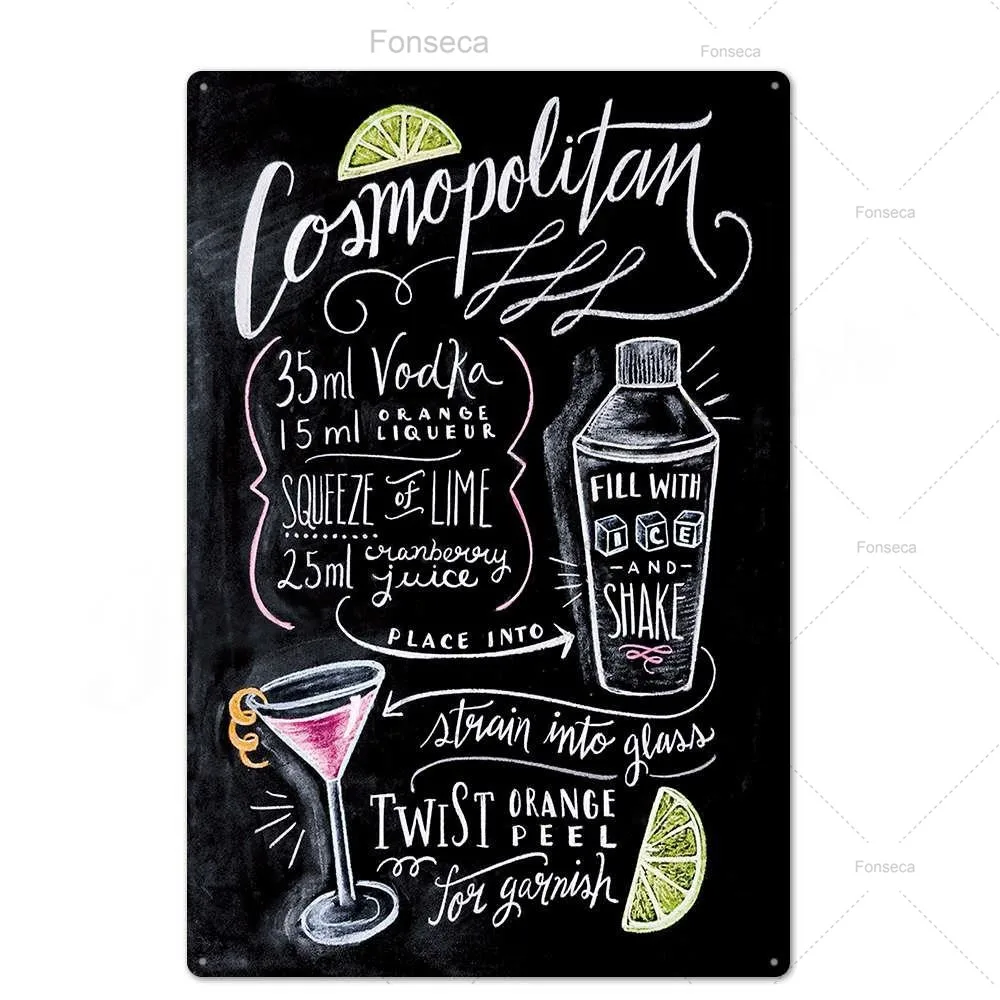 Fonseca
Fonseca
Cosmopolitan
35ml Vodka
15 ml ORANGE LIQUEUR
SQUEEZE of LIME
25ml cranberry juice
PLACE INTO
FILL WITH
ICE
-AND-
SHAKE
strain into glass
TWIST ORANGE PEEL
for garnish
Fonseca
Fonseca
Fonseca